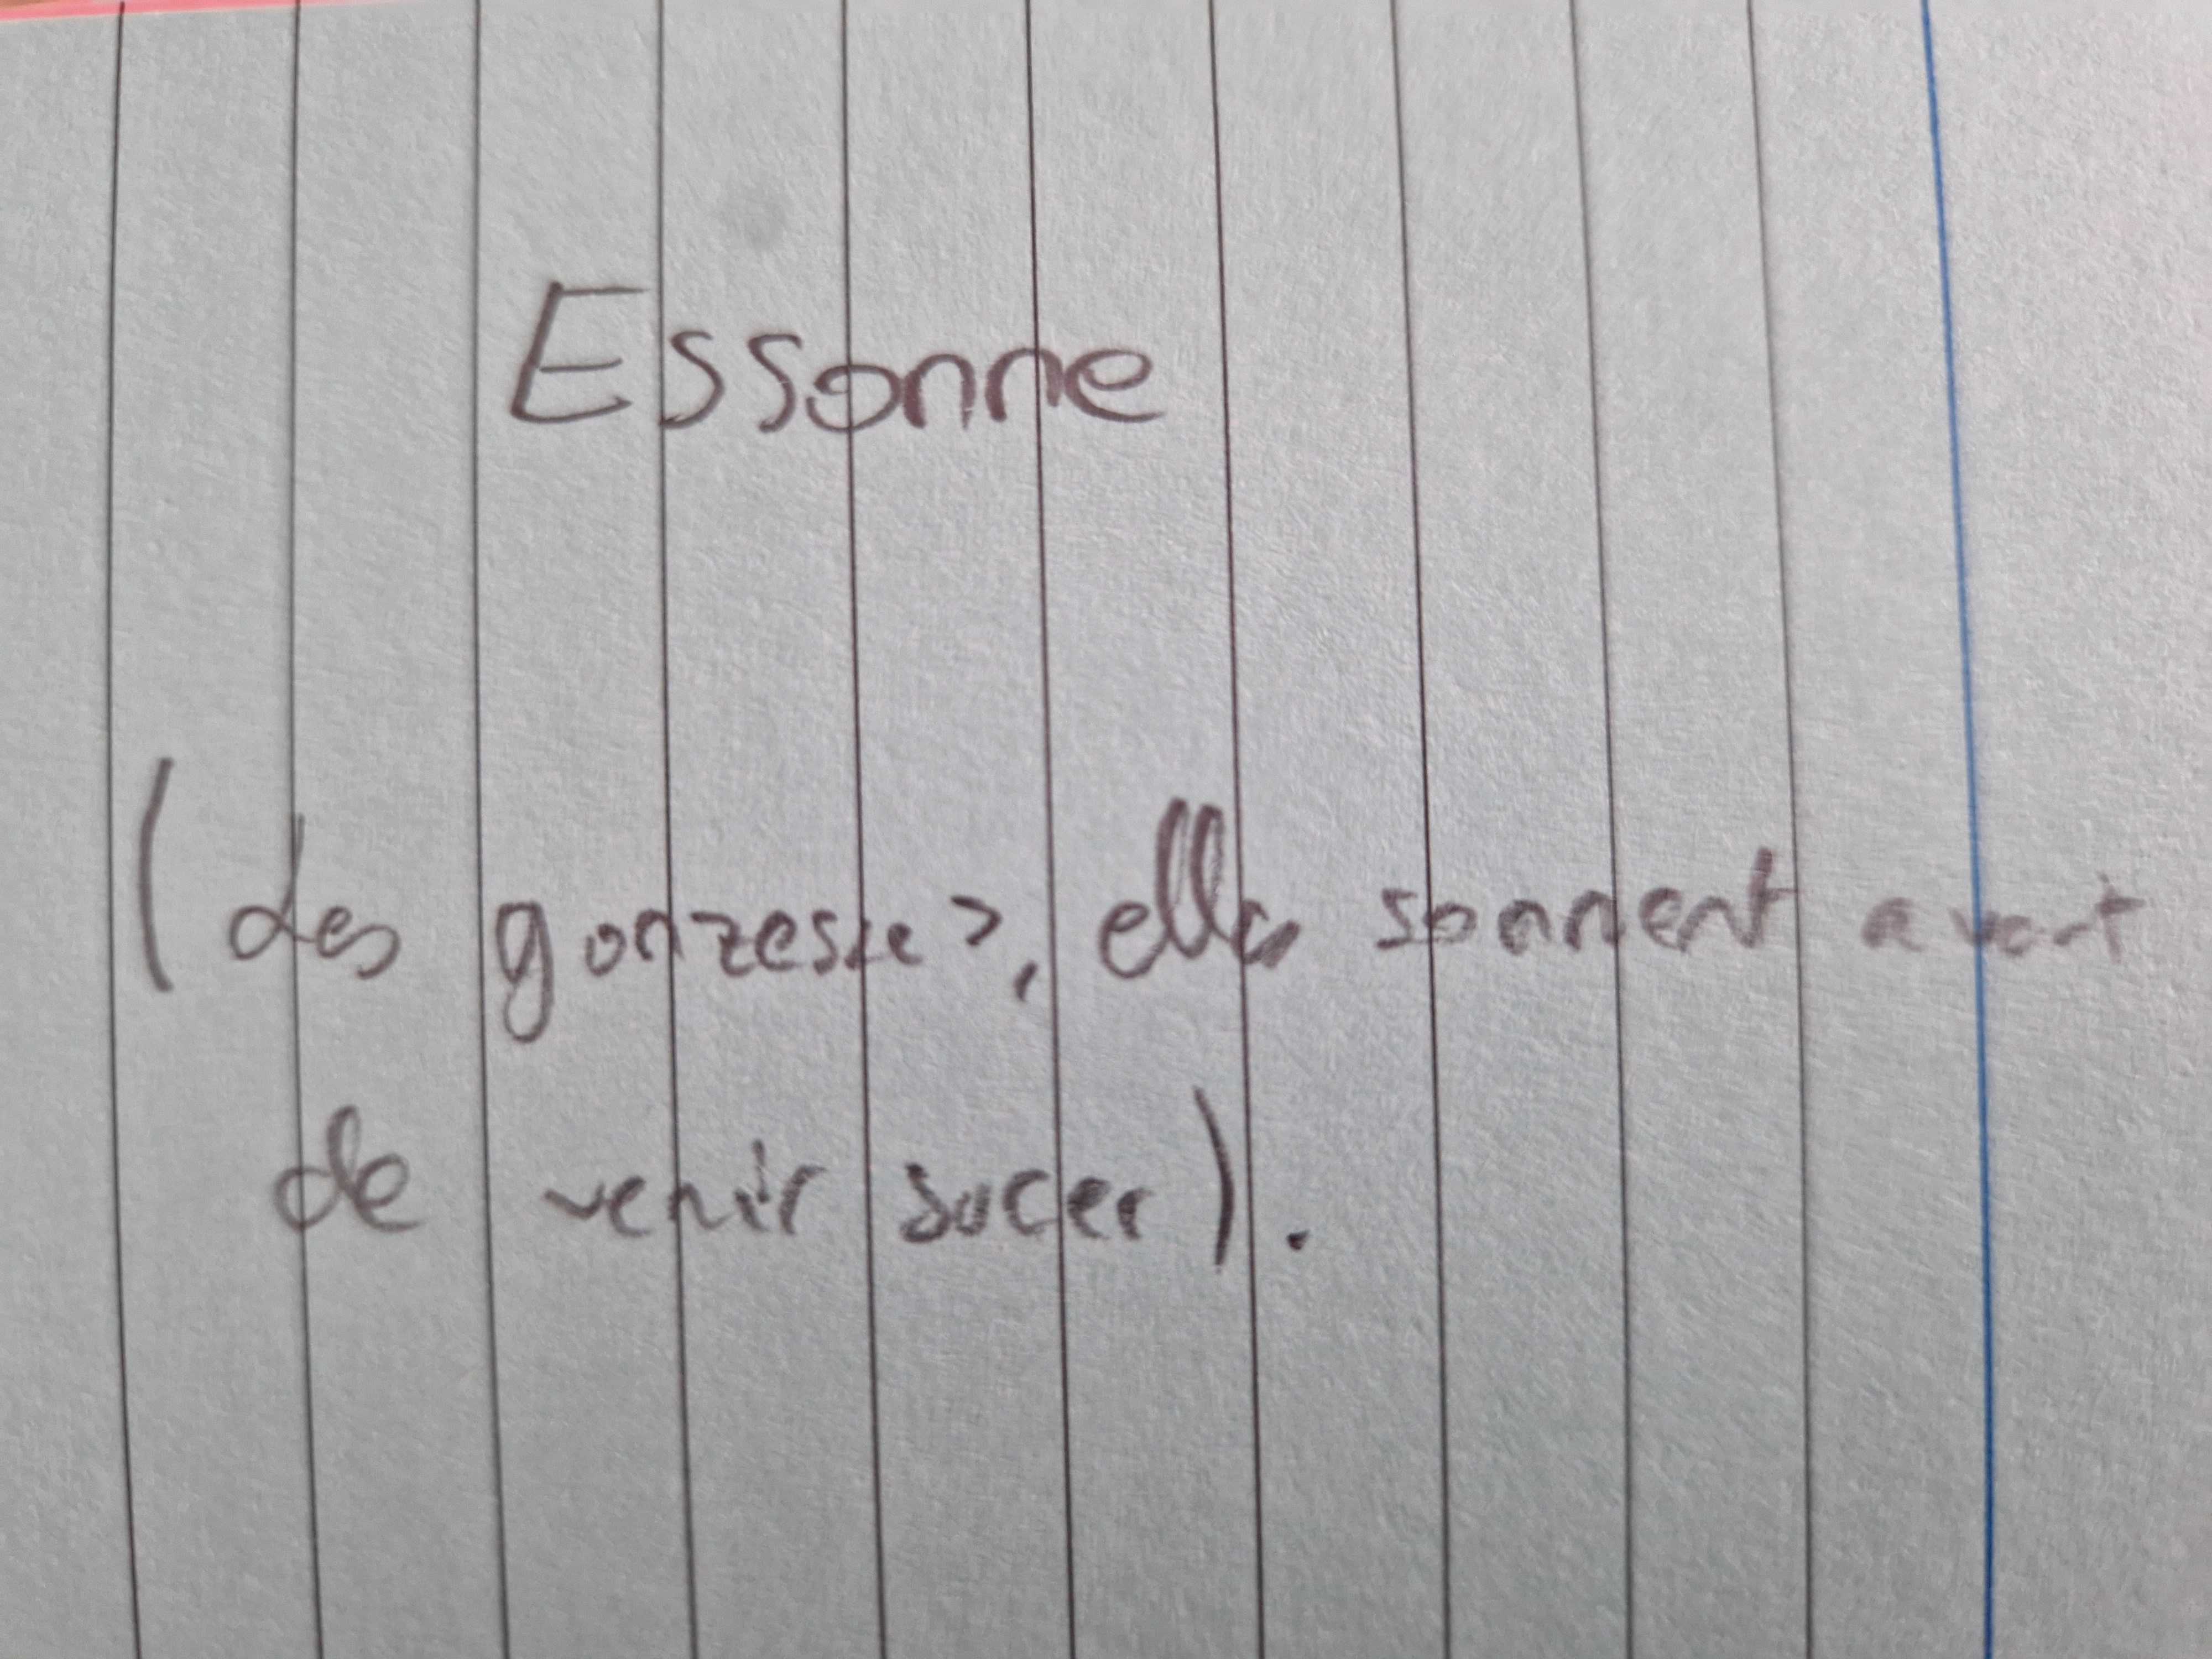 Essonne
(des gonzesses, elles sonnent avant
de venir sucer).